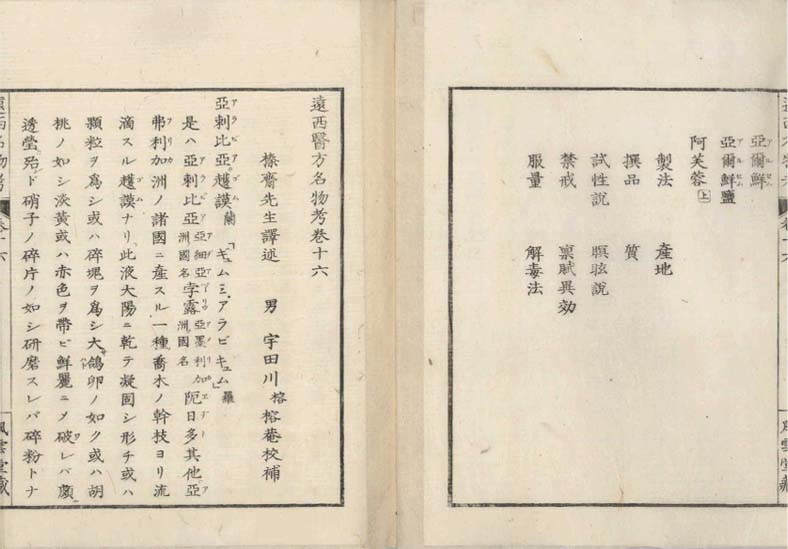 亞爾鮮
亞爾鮮鹽
阿芙蓉 上
製法 產地
撰品 質
試性說 瞑眩說
禁戒 稟賦異効
服量 解毒法
風雲堂藏
遠西醫方名物考卷十六
榛齋先生譯述 男 宇田川 榕 榕菴校補
亞剌比亞護謨 蘭「ギュムミ、アラビキュム」羅
是ハ亞剌比亞 亞細亞洲國名 孛露 亞墨利加洲國名 阨日多其他亞
弗利加洲ノ諸國ニ產スル一種喬木ノ幹技ヨリ流
滴スル護謨ナリ此液大陽ニ乾テ凝固シ形チ或ハ
顆粒ヲ爲シ或ハ碎塊ヲ爲シ大サ鴿卵ノ如ク或ハ胡
桃ノ如シ淡黄或ハ赤色ヲ帶ビ鮮麗ニメ破レバ頗ル
透瑩殆ド硝子ノ碎片ノ如シ研磨スレバ碎粉トナ
卷十六
風雲堂藏